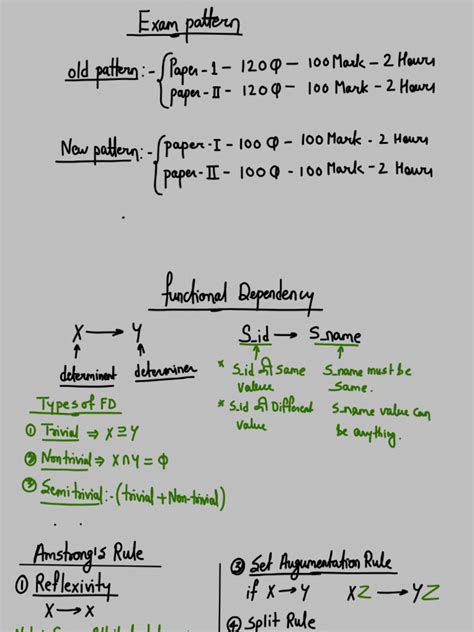 Exam pattern
old pattern:- { Paper-1 - 120Q - 100 Mark - 2 Hours
paper-II - 120Q - 100 Mark - 2 Hours
New pattern:- { paper-I - 100 Q - 100 Mark - 2 Hours
paper-II - 100Q - 100 Mark - 2 Hours
functional Dependency
X → Y
determinant determiner
S_id → S_name
* S_id की Same value
S_name must be Same.
* S_id की Different value
S_name value can be anything.
Types of FD
① Trivial ⇒ X ⊇ Y
② Nontrivial ⇒ X ∩ Y = ϕ
③ Semitrivial:- (trivial + Non-trivial)
Amstrong's Rule
① Reflexivity
X → X
③ Set Augumentation Rule
if X → Y XZ → YZ
④ Split Rule